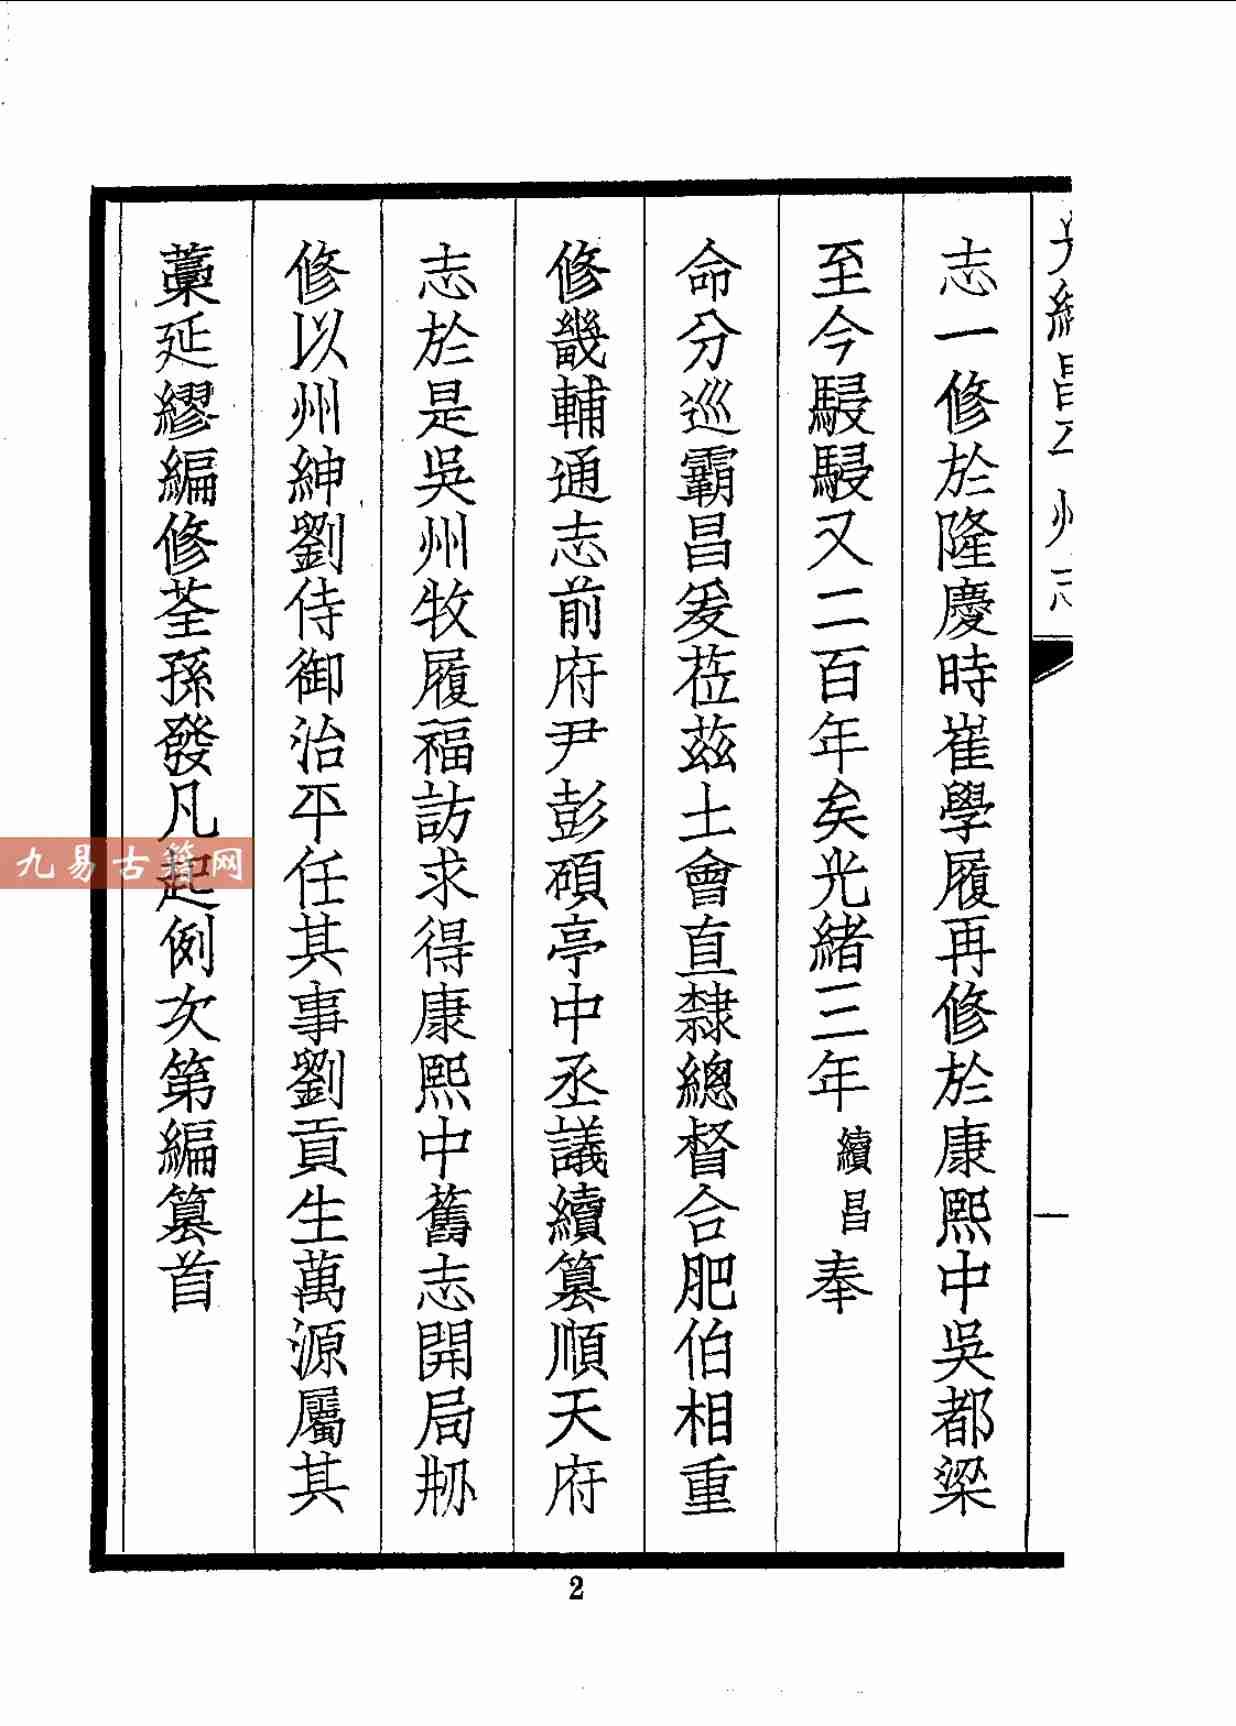 志一修於隆慶時崔學履再修於康熙中吳都梁
至今駸駸又二百年矣光緒三年續昌奉
命分巡霸昌爰莅茲土會直隸總督合肥伯相重
修畿輔通志前府尹彭碩亭中丞議續纂順天府
志於是吳州牧履福訪求得康熙中舊志開局刱
修以州紳劉侍御治平任其事劉貢生萬源屬其
藁延繆編修荃孫發凡起例次第編纂首
一
2
九易古籍网